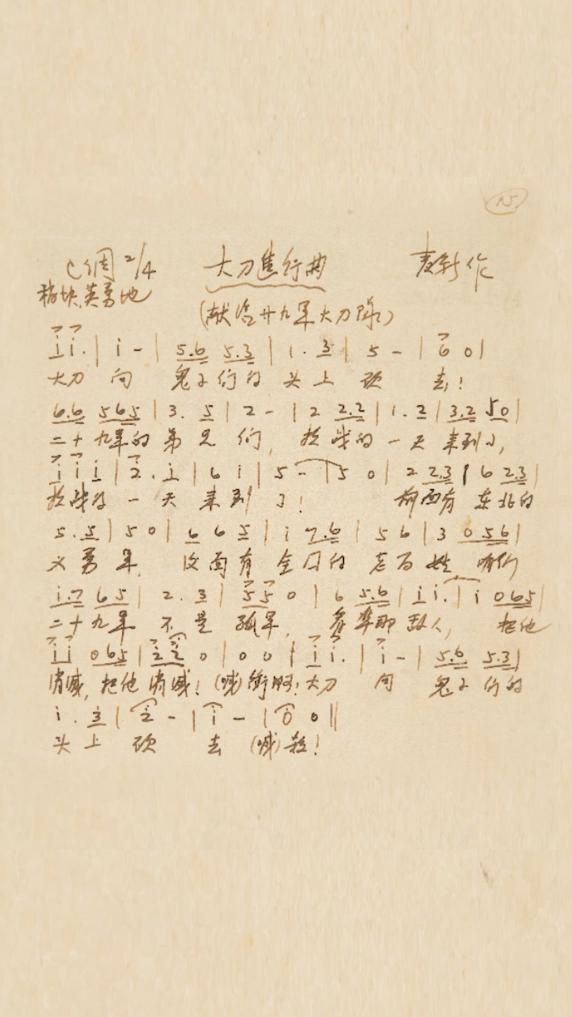 15
C调 2/4 大刀进行曲 麦新作
稍快、英勇地
(献给廿九军大刀队)
i i. | i - | 5.6 5.3 | 1. 3 | 5 - | 6 0 |
大刀 向 鬼子们的 头上 砍 去!
6.6 565 | 3. 5 | 2 - | 2 2.2 | 1. 2 | 3.2 50 |
二十九军的弟兄们, 抗战的一天来到了,
i i i | 2. i | 6 i | 5 - | 5 0 | 2 2.3 | 6 2.3 |
抗战的一天来到了! 前面有东北的
5. 5 | 5 0 | 6 6 5 | i 7.6 | 5 6 | 3 0 56 |
义勇军, 后面有全国的老百姓 咱们
i.7 65 | 2. 3 | 5 5 0 | 6 5.6 | i i. | i 065 |
二十九军不是孤军, 看准那敌人, 把他
i i 065 | 2 2 0 | 0 0 | i i. | i - | 5.6 5.3 |
消灭, 把他消灭! (喊)冲啊! 大刀 向 鬼子们的
i. 3 | 2 - | i - | i 0 ‖
头上 砍 去 (喊)杀!